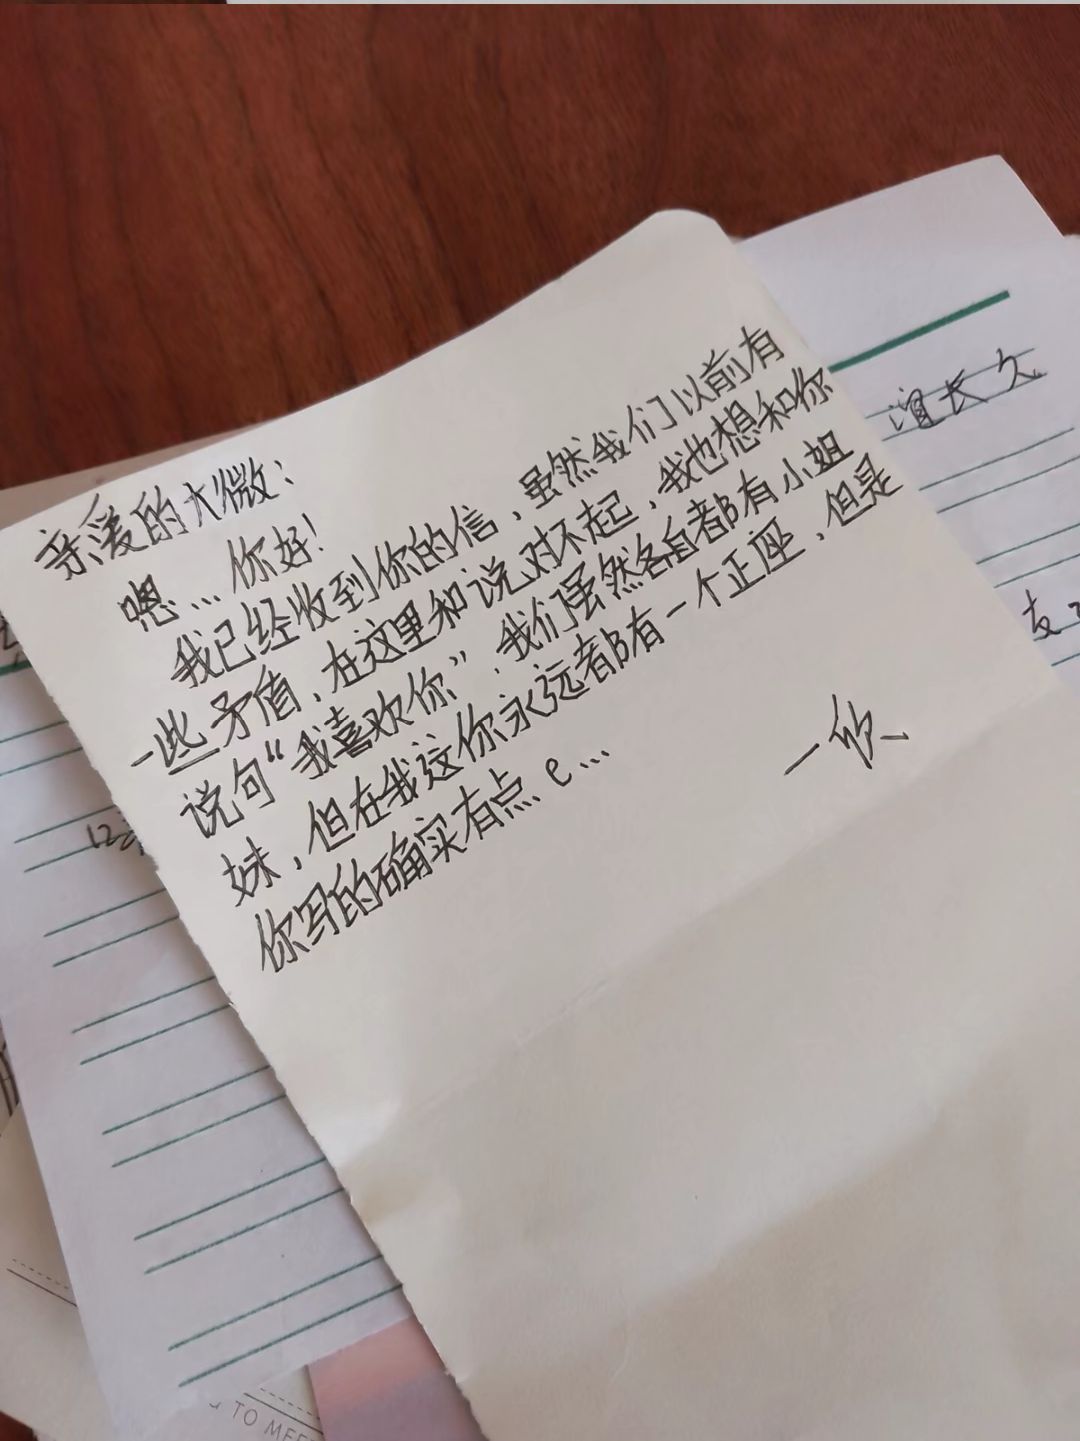 亲爱的大微：
嗯...你好！
我已经收到你的信，虽然我们以前有
一些矛值，在这里和说对不起，我也想和你
说句“我喜欢你”，我们虽然各自都有小姐
妹，但在我这你永远都有一个正座，但是
你写的确实有点e...
一欣
谊长久
友
TO MEE